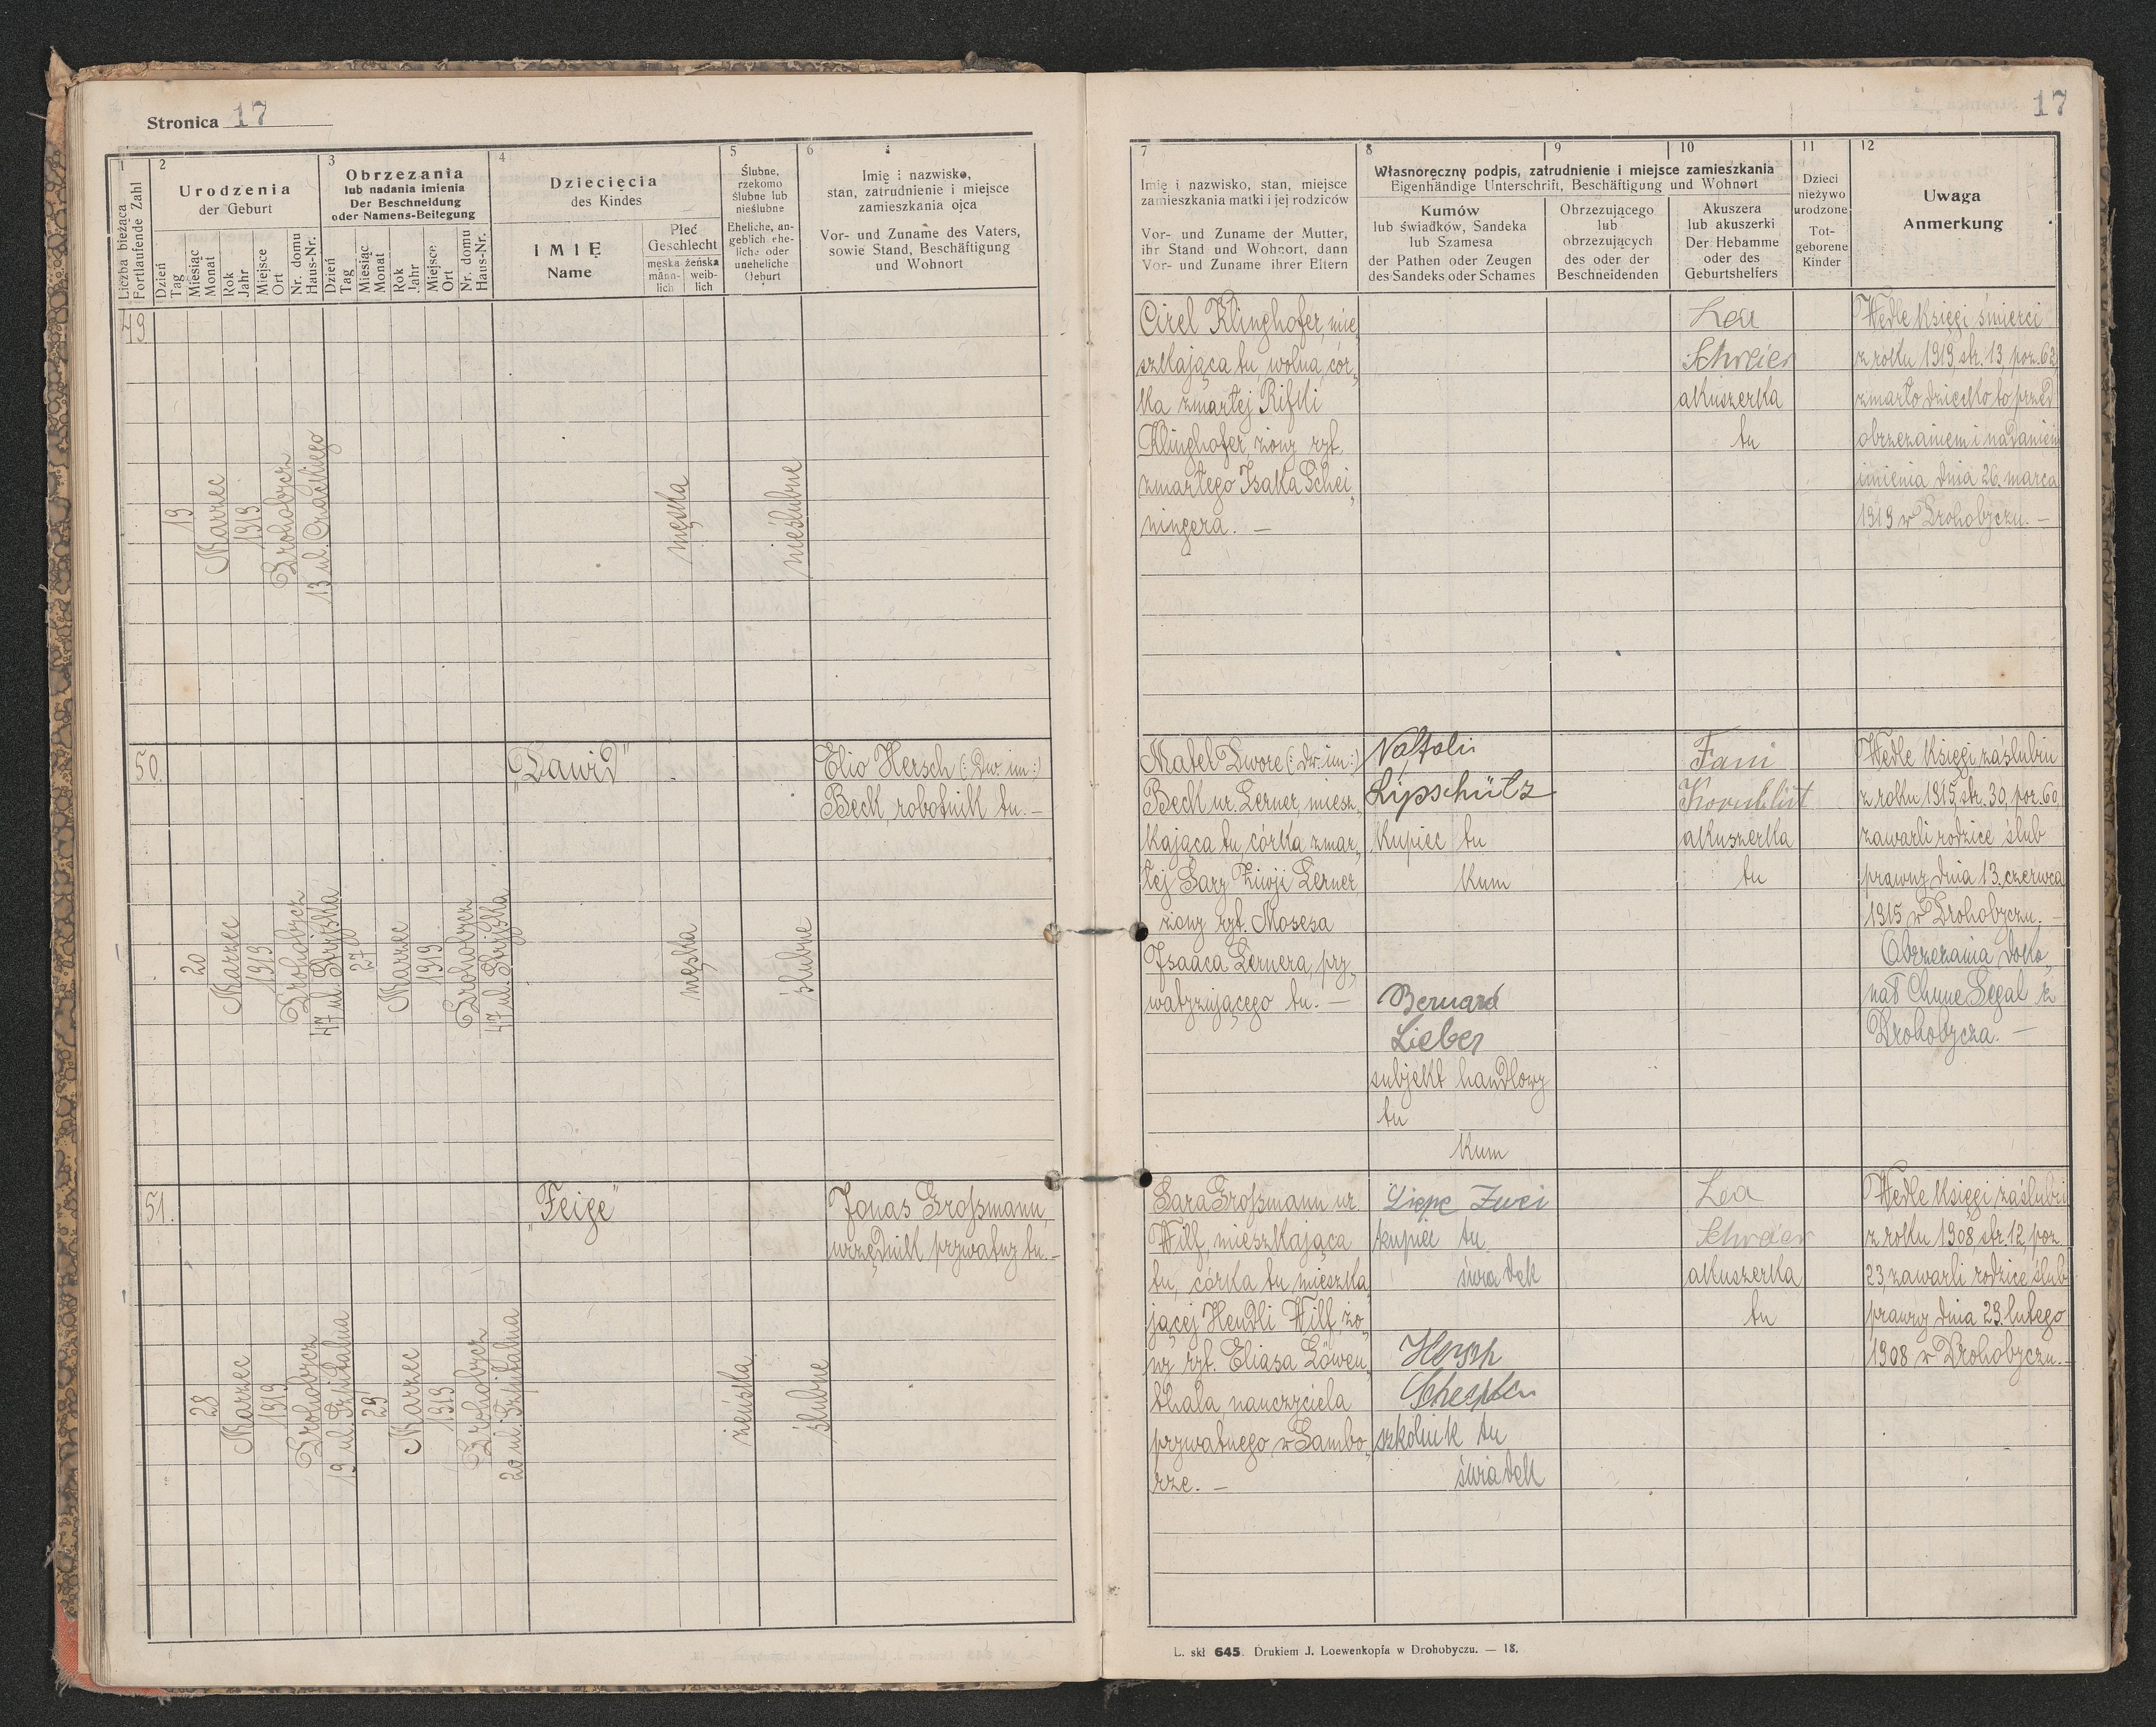 Stronica 17
1
2
3
4
5
6
Liczba bieżąca
Fortlaufende Zahl
Urodzenia
der Geburt
Dzień
Tag
Miesiąc
Monat
Rok
Jahr
Miejsce
Ort
Nr. domu
Haus-Nr.
Obrzezania
lub nadania imienia
Der Beschneidung
oder Namens-Beilegung
Dzień
Tag
Miesiąc
Monat
Rok
Jahr
Miejsce
Ort
Nr. domu
Haus-Nr.
Dziecięcia
des Kindes
IMIĘ
Name
Płeć
Geschlecht
męska
männ-
lich
żeńska
weib-
lich
Ślubne,
rzekomo
ślubne lub
nieślubne
Eheliche, an-
geblich ehe-
liche oder
uneheliche
Geburt
Imię i nazwisko,
stan, zatrudnienie i miejsce
zamieszkania ojca
Vor- und Zuname des Vaters,
sowie Stand, Beschäftigung
und Wohnort
49
19
Marzec
1919
Drohobycz
13 ul. Czackiego
męska
nieślubne
50.
20
Marzec
1919
Drohobycz
47 ul. Stryjska
27
Marzec
1919
Drohobycz
47 ul. Stryjska
„Dawid"
męska
ślubne
Elio Hersch (: Dw. im :)
Beck, robotnik tu. —
51.
28
Marzec
1919
Drohobycz
19 ul. Szpitalna
29
Marzec
1919
Drohobycz
20 ul. Szpitalna
„Feige"
żeńska
ślubne
Jonas Großmann,
urzędnik prywatny tu. —
17
7
8
9
10
11
12
Imię i nazwisko, stan, miejsce
zamieszkania matki i jej rodziców
Vor- und Zuname der Mutter,
ihr Stand und Wohnort, dann
Vor- und Zuname ihrer Eltern
Własnoręczny podpis, zatrudnienie i miejsce zamieszkania
Eigenhändige Unterschrift, Beschäftigung und Wohnort
Kumów
lub świadków, Sandeka
lub Szamesa
der Pathen oder Zeugen
des Sandeks oder Schames
Obrzezującego
lub
obrzezujących
des oder der
Beschneidenden
Akuszera
lub akuszerki
Der Hebamme
oder des
Geburtshelfers
Dzieci
nieżywo
urodzone
Tot-
geborene
Kinder
Uwaga
Anmerkung
Cirel Klinghofer, mie
szkająca tu, wolna, cór„
ka zmarłej Rifki
Klinghofer, żony ryt.
zmarłego Isaka Schei„
ningera. —
Lea
Schreier
akuszerka
tu
Wedle księgi śmierci
z roku 1919, str. 13, poz. 62,
zmarło dziecko to przed
obrzezaniem i nadaniem
imienia dnia 26. marca
1919 w Drohobyczu. —
Matel Dwore (: Dw. im :)
Beck ur. Lerner, miesz„
kająca tu, córka zmar„
łej Sary Ziwji Lerner,
żony ryt. Mosesa
Isaaca Lernera, pry„
watyzującego tu. —
Naftali
Lipschütz
kupiec tu
kum
Bernard
Lieber
subjekt handlowy
tu
kum
Fani
Kornblüt
akuszerka
tu
Wedle księgi zaślubin
z roku 1915, str. 30, poz. 60,
zawarli rodzice ślub
prawny dnia 13. czerwca
1915 w Drohobyczu. —
Obrzezania doko„
nał Chune Segal z
Drohobycza. —
Sara Großmann ur.
Wilf, mieszkająca
tu, córka tu mieszka„
jącej Hendli Wilf, żo„
ny ryt. Eliasa Löwen„
thala nauczyciela
prywatnego w Sambo„
rze. —
kupiec tu
świadek
Hersch
szkolnik tu
świadek
Lea
Schreier
akuszerka
tu
Wedle księgi zaślubin
z roku 1908, str. 12, poz.
23, zawarli rodzice ślub
prawny dnia 23. lutego
1908 w Drohobyczu. —
L. skł 645. Drukiem J. Loewenkopfa w Drohobyczu. — 18.